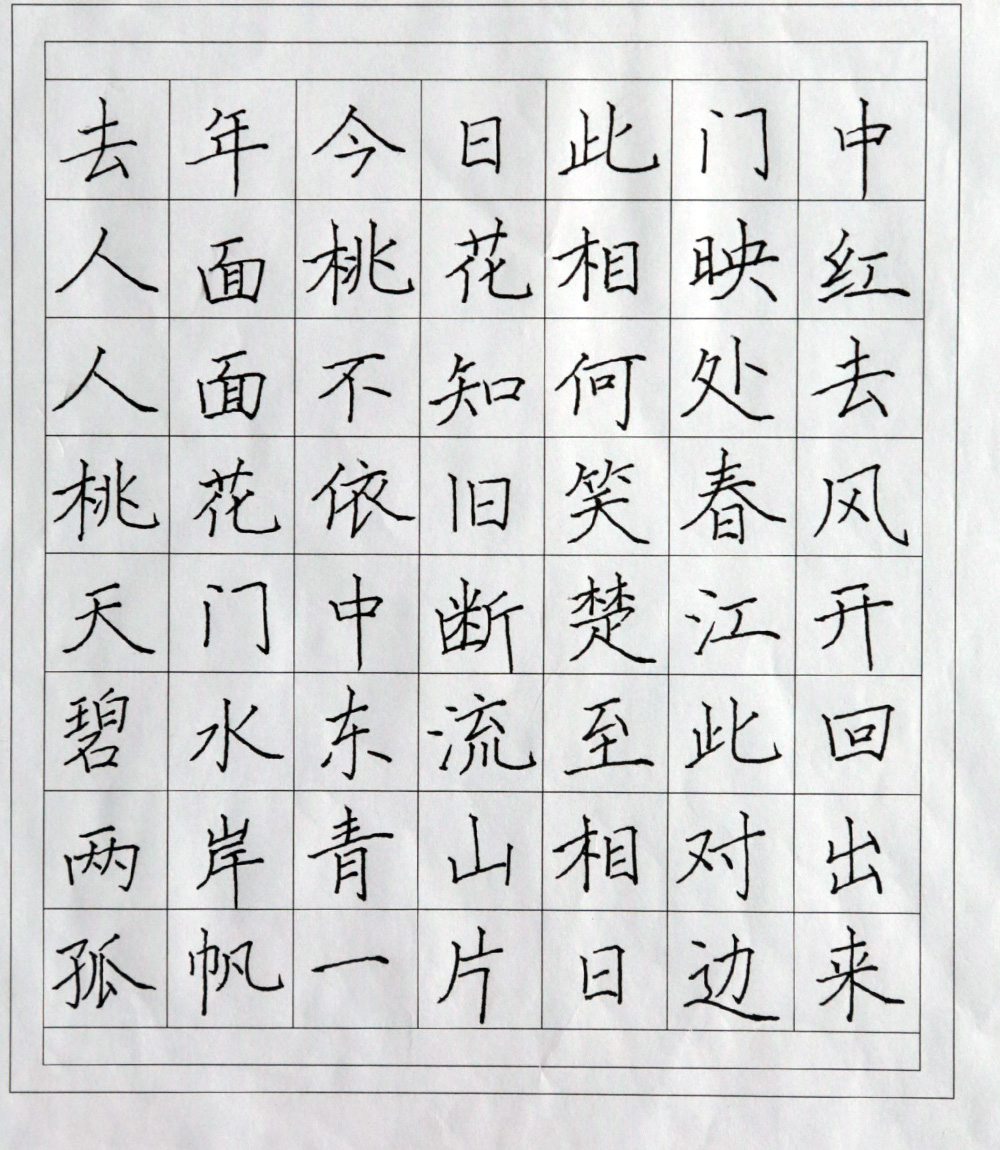 去年今日此门中
人面桃花相映红
人面不知何处去
桃花依旧笑春风
天门中断楚江开
碧水东流至此回
两岸青山相对出
孤帆一片日边来